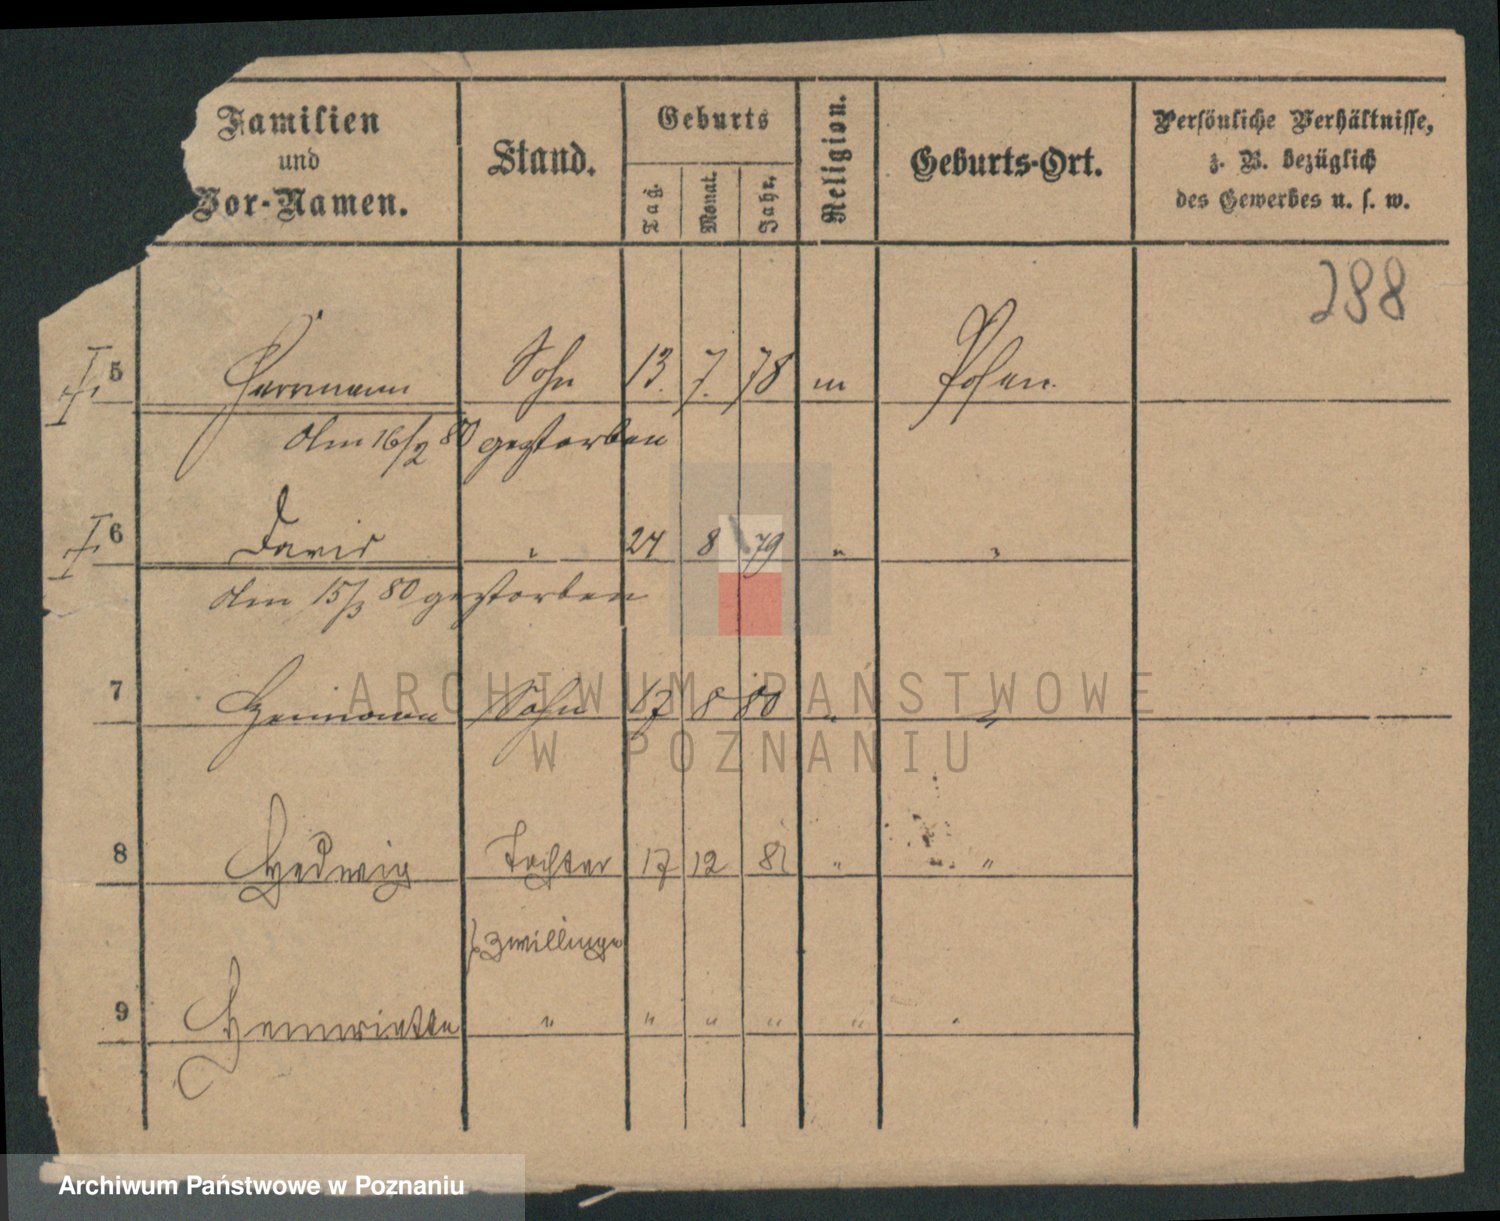 Familien
und
Vor-Namen.
Stand.
Geburts
Tag.
Monat.
Jahr.
Religion.
Geburts-Ort.
Persönliche Verhältnisse,
z. B. bezüglich
des Gewerbes u. s. w.
288
5 Herrmann Sohn 13. 7. 78 m Posen
Am 16/2 80 gestorben
6 David " 24 8 79 " "
Am 15/3 80 gestorben
7 Heimann Sohn 17 8 80 " "
ARCHIWUM PAŃSTWOWE
W POZNANIU
8 Hedwig Tochter 17 12 " "
Zwillinge
9 Hennriette " " " " " "
Archiwum Państwowe w Poznaniu